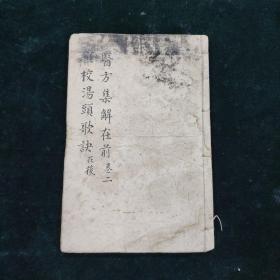 醫方集解在前 卷二
校湯頭歌訣 在後